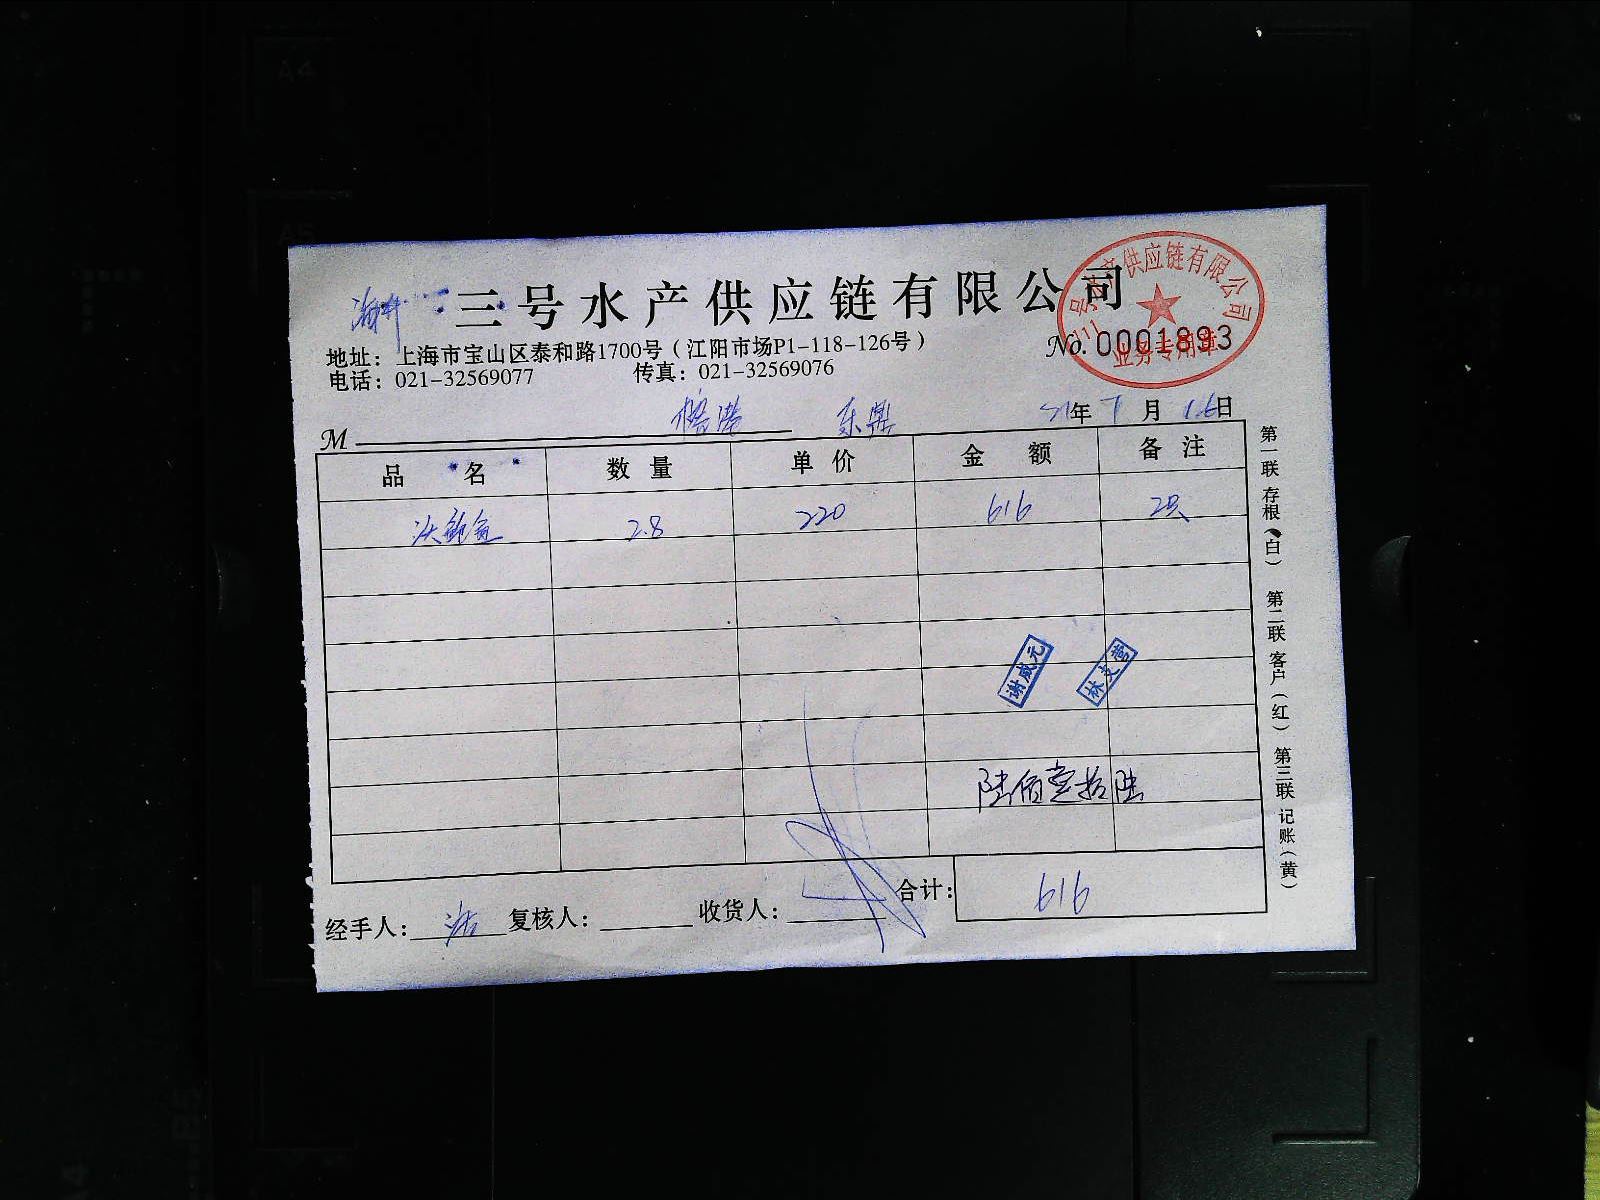 三号水产供应链有限公司
号水产供应链有限公司
业务专用章
No. 0001893
地址：上海市宝山区泰和路1700号（江阳市场P1-118-126号）
电话：021-32569077 传真：021-32569076
M 榕港 东鼎 21年 7月 16日
品名 数量 单价 金额 备注
鲍鱼 2.8 220 616 2只
谢咸元 林支营
陆佰壹拾陆
合计： 616
经手人： 复核人： 收货人：
第一联 存根（白） 第二联 客户（红） 第三联 记账（黄）